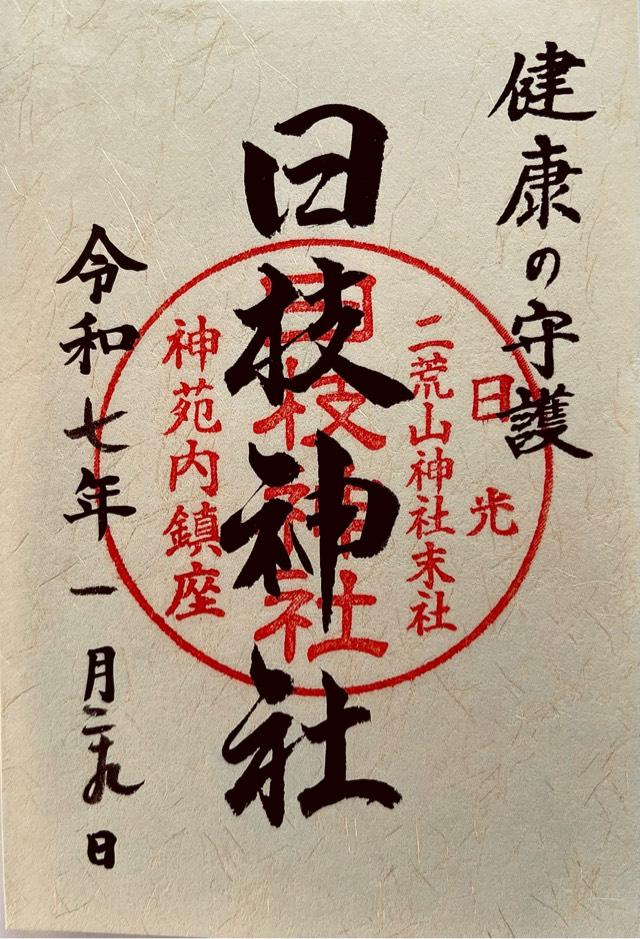 健康の守護
日光
二荒山神社末社
日枝神社
日枝神社
神苑内鎮座
令和七年一月二十九日